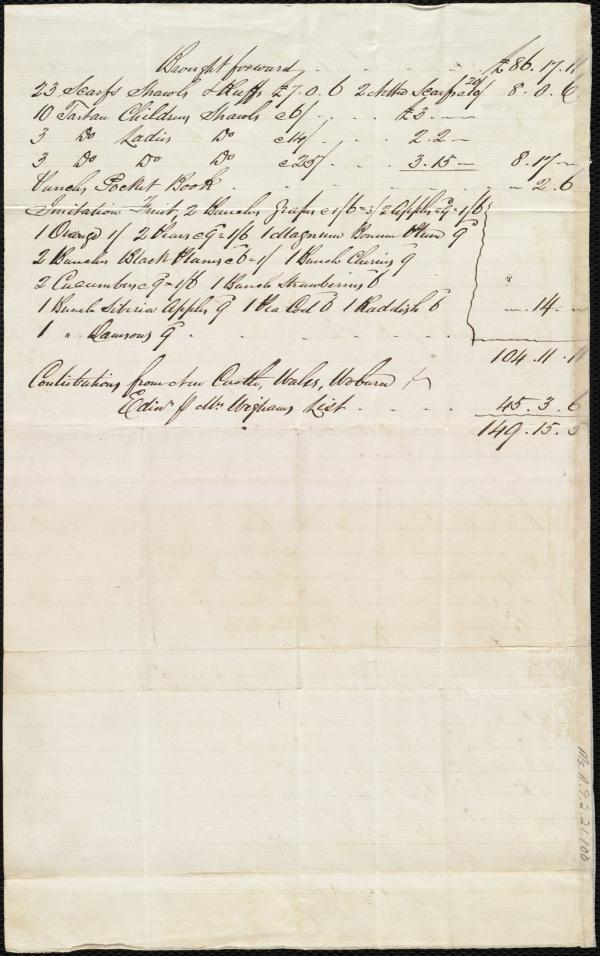 Brought forward . . . . . £86.17.11
23 Scarfs Shawls & Ruffs £7.0.6 2 Netted Scarfs @10/ 20/ 8.0.6
10 Tartan Childrens Shawls @6/ . . . £3.—
3 Do Ladies Do @14/ . . . 2.2—
3 Do Do Do @25/ . . . 3.15— 8.17—
Pocket Book . . . . . — 2.6
Imitation Fruit, 2 Bunches Grapes @1/6=3/ 2 Apples @9=1/6
1 Orange 1/ 2 Pears @9=1/6 1 Magnum Bonum Plum 9
2 Bunches Black Plums @6=1/ 1 Bunch Cherries 9
2 Cucumbers @9=1/6 1 Bunch Strawberries 6
1 Bunch Siberia Apples 9 1 Pea Cod 6 1 Raddish 6 — .14. —
1 " Damsons 9 . . . . . .
104.11.11
Contributions from New Castle, Wales, Woburn
Edinr p Mrs Wighams List . . . . 45.3.6
149.15.5
Ms. A.9.2.21.100